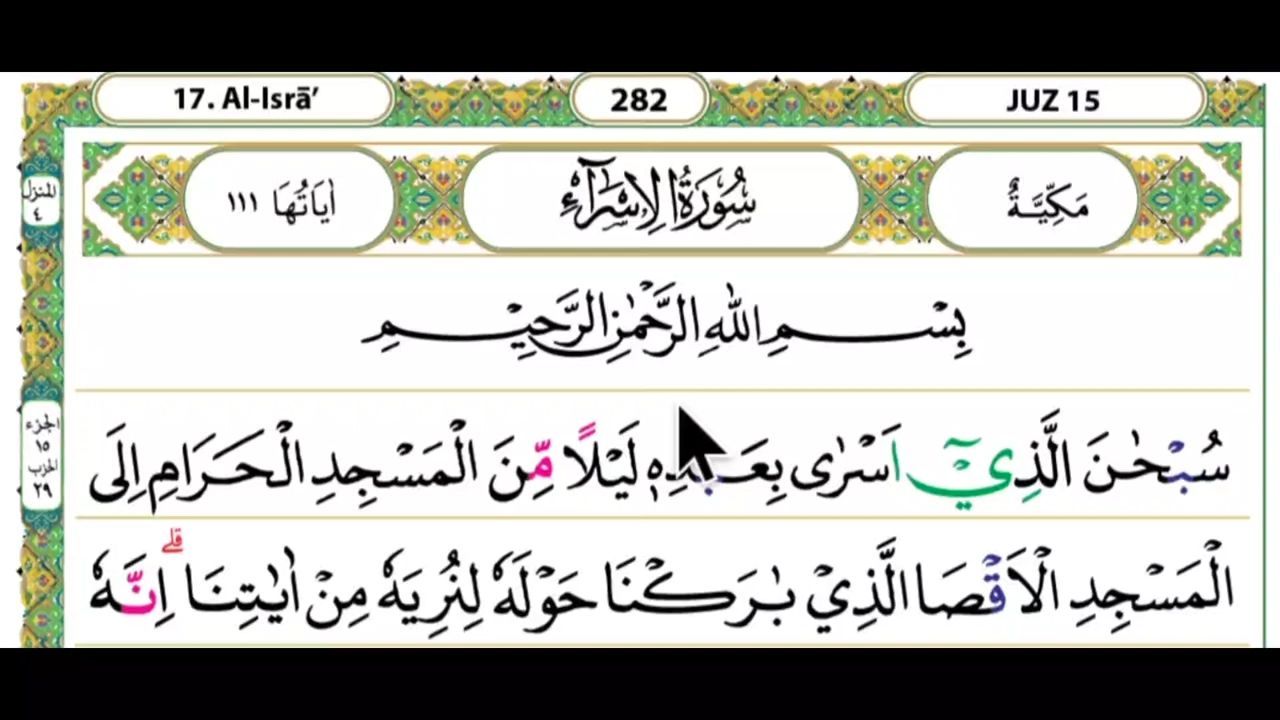 17. Al-Isrā’
282
JUZ 15
مَكِّيَّةٌ
سُوْرَةُ الْاِسْرَآءِ
اٰيَاتُهَا ١١١
المنزل
٤
بِسْمِ اللّٰهِ الرَّحْمٰنِ الرَّحِيْمِ
سُبْحٰنَ الَّذِيْٓ اَسْرٰى بِعَبْدِهٖ لَيْلًا مِّنَ الْمَسْجِدِ الْحَرَامِ اِلَى
الْمَسْجِدِ الْاَقْصَا الَّذِيْ بٰرَكْنَا حَوْلَهٗ لِنُرِيَهٗ مِنْ اٰيٰتِنَاۗ اِنَّهٗ
الجزء
١٥
الحزب
٢٩